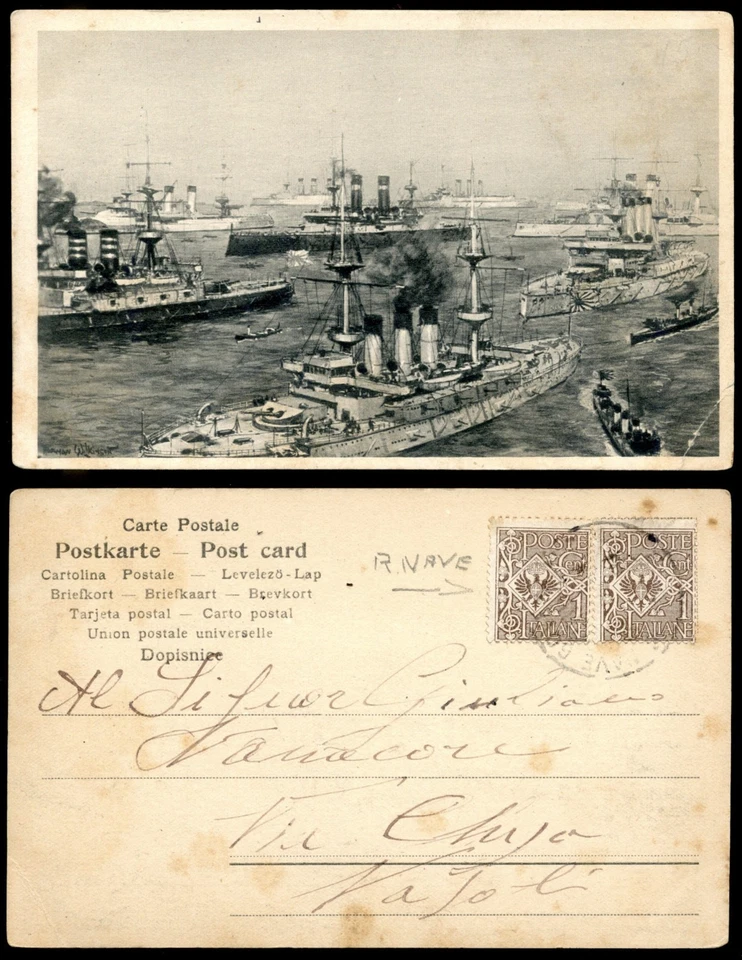 Norman Wilkinson
Carte Postale
Postkarte — Post card
Cartolina Postale — Levelező-Lap
Briefkort — Briefkaart — Brevkort
Tarjeta postal — Carto postal
Union postale universelle
Dopisnice
R. NAVE
POSTE POSTE
1 1
ITALIANE ITALIANE
NAVE
Al Signor Giuliano
Vanacore
Via Chiaja
Napoli